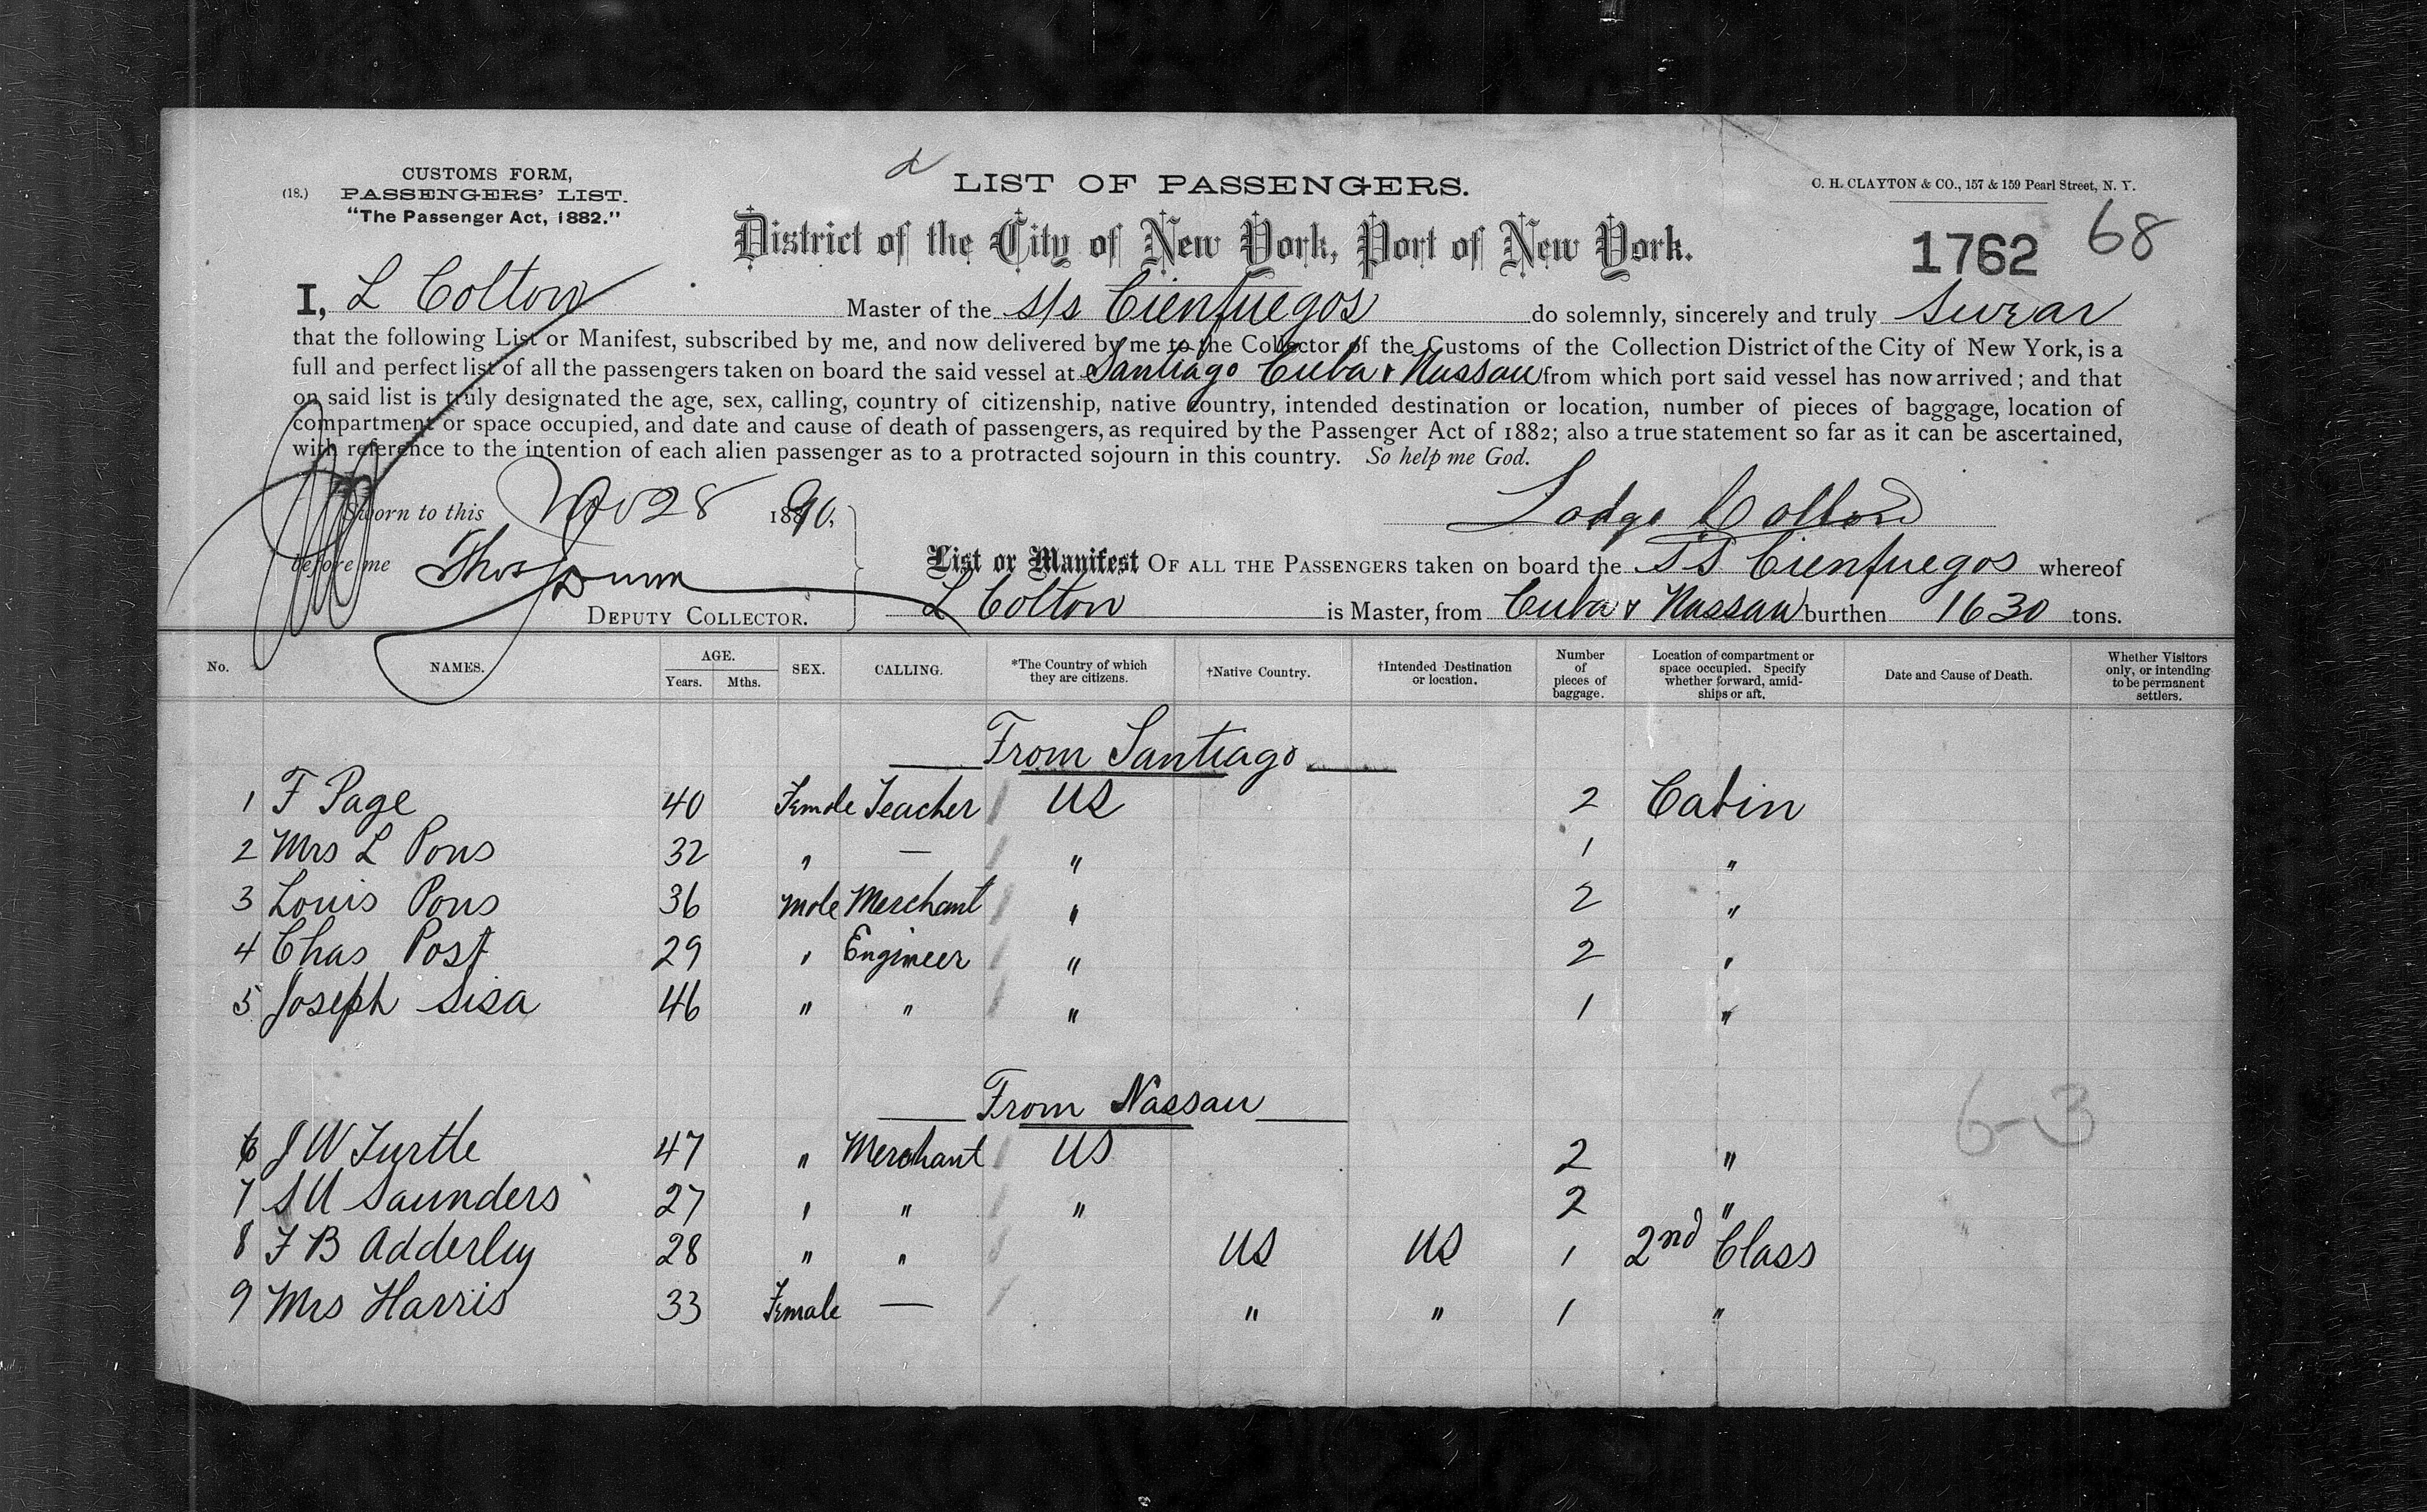 CUSTOMS FORM,
(18.) PASSENGERS' LIST.
"The Passenger Act, 1882."
LIST OF PASSENGERS.
C. H. CLAYTON & CO., 157 & 159 Pearl Street, N. Y.
District of the City of New York, Port of New York.
1762 68
I, L Colton Master of the s/s Cienfuegos do solemnly, sincerely and truly swear
that the following List or Manifest, subscribed by me, and now delivered by me to the Collector of the Customs of the Collection District of the City of New York, is a
full and perfect list of all the passengers taken on board the said vessel at Santiago Cuba & Nassau from which port said vessel has now arrived; and that
on said list is truly designated the age, sex, calling, country of citizenship, native country, intended destination or location, number of pieces of baggage, location of
compartment or space occupied, and date and cause of death of passengers, as required by the Passenger Act of 1882; also a true statement so far as it can be ascertained,
with reference to the intention of each alien passenger as to a protracted sojourn in this country. So help me God.
Sworn to this Nov 28 1890, Lodge Colton
before me Thos Dunn
List or Manifest OF ALL THE PASSENGERS taken on board the SS Cienfuegos whereof
DEPUTY COLLECTOR. L Colton is Master, from Cuba & Nassau burthen 1630 tons.
No. NAMES. AGE. Years. Mths. SEX. CALLING. *The Country of which they are citizens. †Native Country. †Intended Destination or location. Number of pieces of baggage. Location of compartment or space occupied. Specify whether forward, amidships or aft. Date and Cause of Death. Whether Visitors only, or intending to be permanent settlers.
From Santiago
1 F Page 40 Female Teacher US 2 Cabin
2 Mrs L Pons 32 " — " 1 "
3 Louis Pons 36 Male Merchant " 2 "
4 Chas Post 29 " Engineer " 2 "
5 Joseph Sisa 46 " " " 1 "
From Nassau
6-3
6 J W Turtle 47 " Merchant US 2 "
7 S U Saunders 27 " " " 2 "
8 F B Adderley 28 " " US US 1 2nd Class
9 Mrs Harris 33 Female — " " 1 "